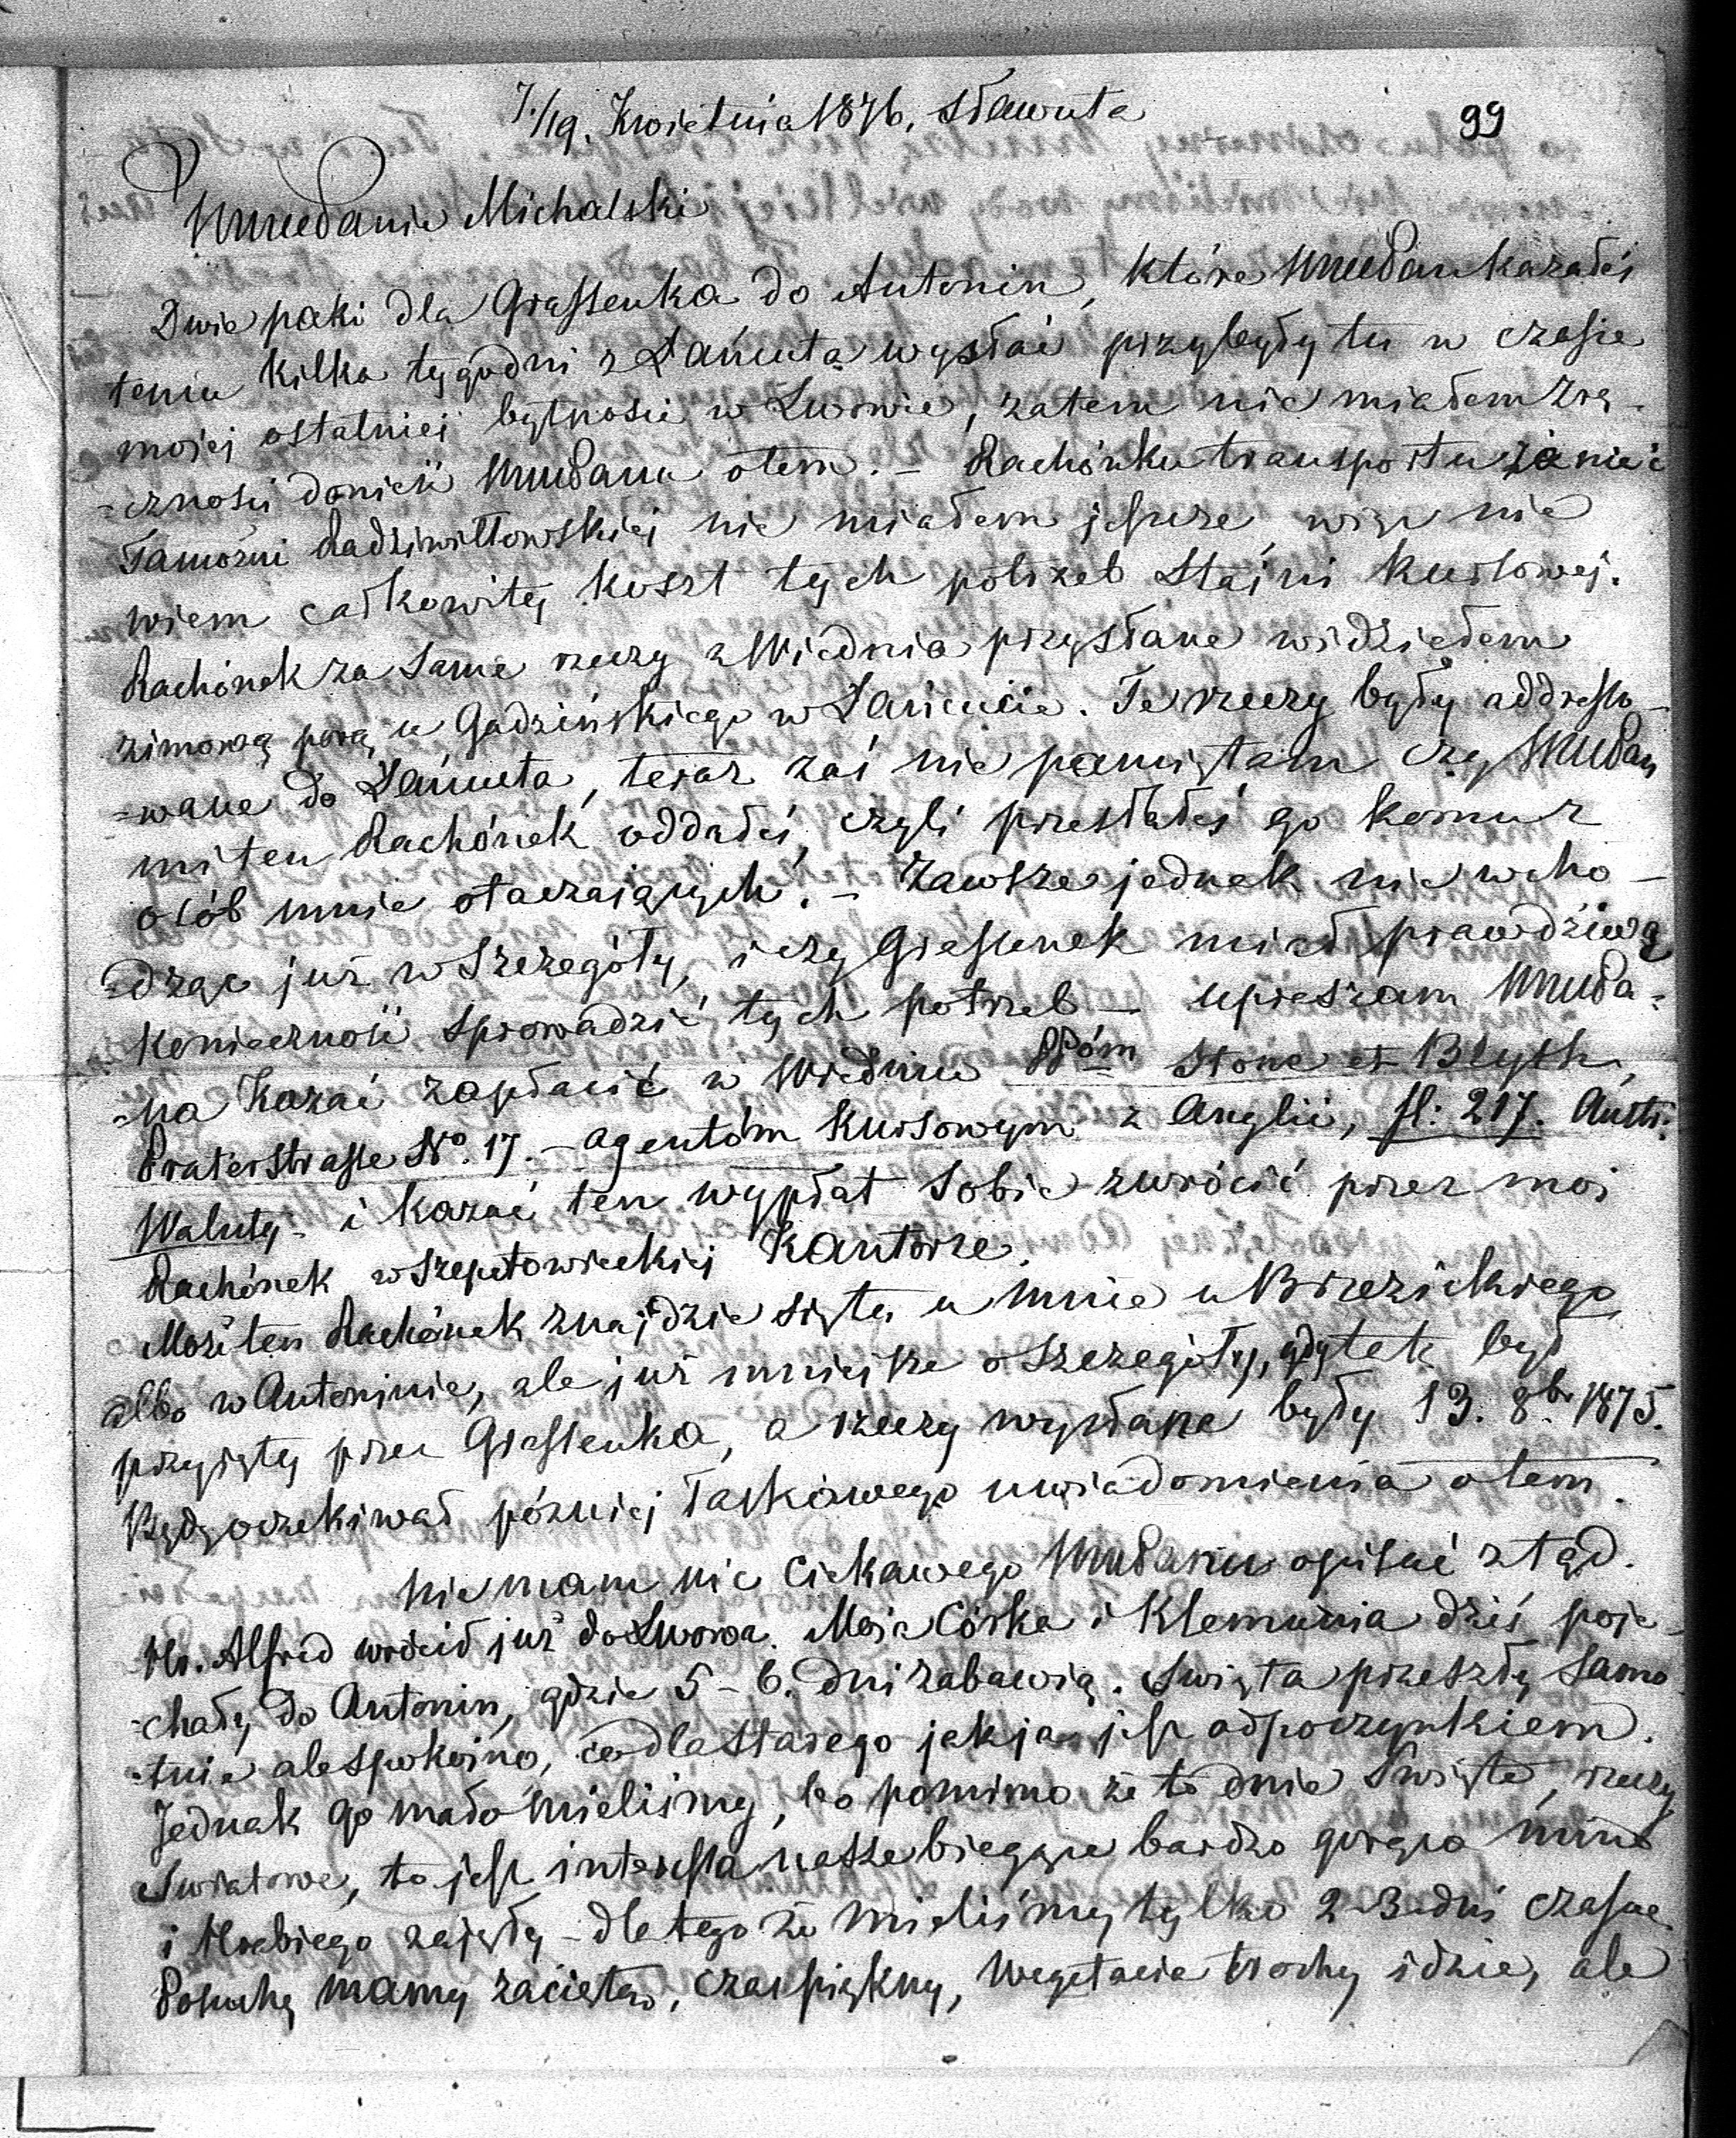 7./19. Kwietnia 1876. Sławuta
99
WMPanie Michalski
Dwie paki dla Grassenka do Antonin, które WMPan kazałeś
temu kilka tygodni z Łańcuta wysłać przybyły tu w czasie
mojej ostatniej bytności w Lwowie, zatem nie miałem zrę-
=czności donieść WMPanu otem. – Rachónku transportu i
Tamożni Radziwiłłowskiej nie miałem jeszcze, więc nie
wiem całkowity koszt tych potrzeb Stajni Kursowej.
Rachónek za same rzeczy z Wiednia przysłane widziałem
zimową porą u Gadzińskiego w Łańcucie. Te rzeczy były addresso-
=wane do Łańcuta, teraz zaś nie pamiętam czy WMPan
mi ten Rachónek oddałeś, czyli przesłałeś go komu z
osób mnie otaczających. – Zawsze jednak nie wcho-
=dząc już w szczegóły, i czy Grassenek miał prawdziwą
konieczność sprowadzić tych potrzeb – upraszam WMPa-
=na kazać zapłacić w Wiedniu PPóm Stone et Blyth,
Praterstrasse No. 17. – agentóm kursowym z Anglii, fl: 217. Austr:
Waluty – i kazać ten wypłat sobie zwrócić przez mój
Rachónek w Szepetowieckiej Kantorze.
Może ten Rachónek znajdzie się tu u mnie u Brzezickiego
albo w Antoninie, ale już mniejsze o szczegóły, gdy tek był
przyjęty przez Grassenka, a rzeczy wysłane były 13. 8br 1875.
Będę oczekiwał później łaskawego uwiadomienia otem.
Nie mam nic ciekawego WMPanu opisać ztąd.
Hr. Alfred wrócił już do Lwowa. Moja Córka i Klemunia dziś poje-
=chały do Antonin, gdzie 5 – 6. dni zabawią. Święta przeszły samo
=tnie ale spokojno, co dla starego jak ja jest odpoczynkiem.
Jednak go mało mieliśmy, bo pomimo że to dnie Święte, rzeczy
Światowe, to jest interessa nasze bieżące bardzo gorąco mnie
i Hrabiego zajęły – dla tego że mieliśmy tylko 2-3 dni czasu.
Posuchę mamy zaciętą, czas piękny, Wegetacia trochę idzie, ale